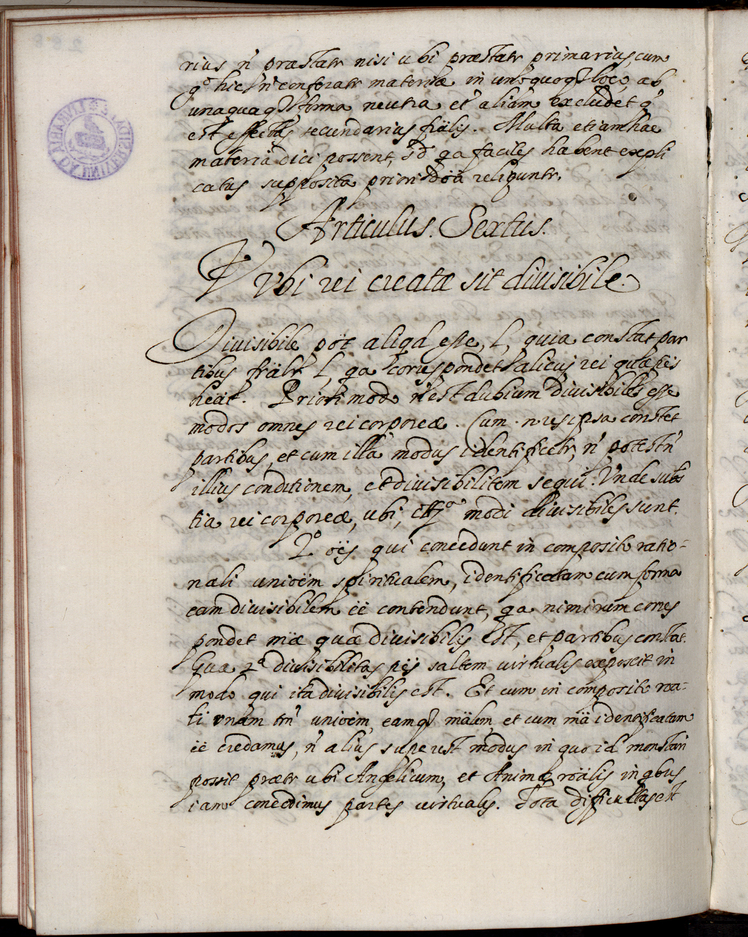 rius n̄ præstatr nisi ubi præstatr primarius cum
qº hic n̄ conferatr materiæ in unoquoq loco ab
unaquaq forma neutra et aliam excludet qº
est effectus secundarius frālis. Multa etiam hac
materia dici possent, sd qa faciles habent expli
catus supposita primi relinquntr.
Articulus. Sextus.
Vbi rei creatæ sit divisibile.
Divisibile pōt aliqd esse, l, quia constat par
tibus frālr l, qa correspondet alicui rei quæ
heāt. Priori modo n̄ est dubium divisibiles esse
modos omnes rei corporeæ. Cum n. res ipsa constet
partibus, et cum illa modus identificetr, n̄ potest n̄
illius conditionem, et divisibilitem sequi. Unde subs
tia rei corporeæ, ubi, modi divisibiles sunt.
2º oēs qui concedunt in composito ratio-
nali unioēm spiritualem, identificatam cum forma
eam divisibilem eē contendunt, qa nimirum corres
pondet māæ quæ divisibilis est, et partibus constat.
Quæ 2ª divisibilitas saltem virtualis exposcit in
modo qui ita divisibilis est. Et cum in composito roa-
li unam tn̄ unioēm, eamq mālem et cum mā identificatam
eē credamus, n̄ alius superest modus in quo id monstrari
possit prætr ubi Angelicum, et Animæ roālis in qbus
iam concedimus partes virtuales. Tota difficultas est